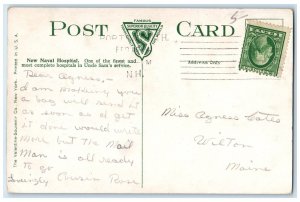 FAMOUS
SUPERIOR QUALITY
POST CARD
New Naval Hospital. One of the finest and
most complete hospitals in Uncle Sam's service.
ADDRESS ONLY
N.H.
Dear Agness:-
I am making you
a bag will send it
as soon as I get
it done would write
more but the Mail
Man is all ready
to go
Lovingly Cousin Rose
Miss Agness
Wilton
Maine
The Valentine-Souvenir Co., New York. Printed in U.S.A.